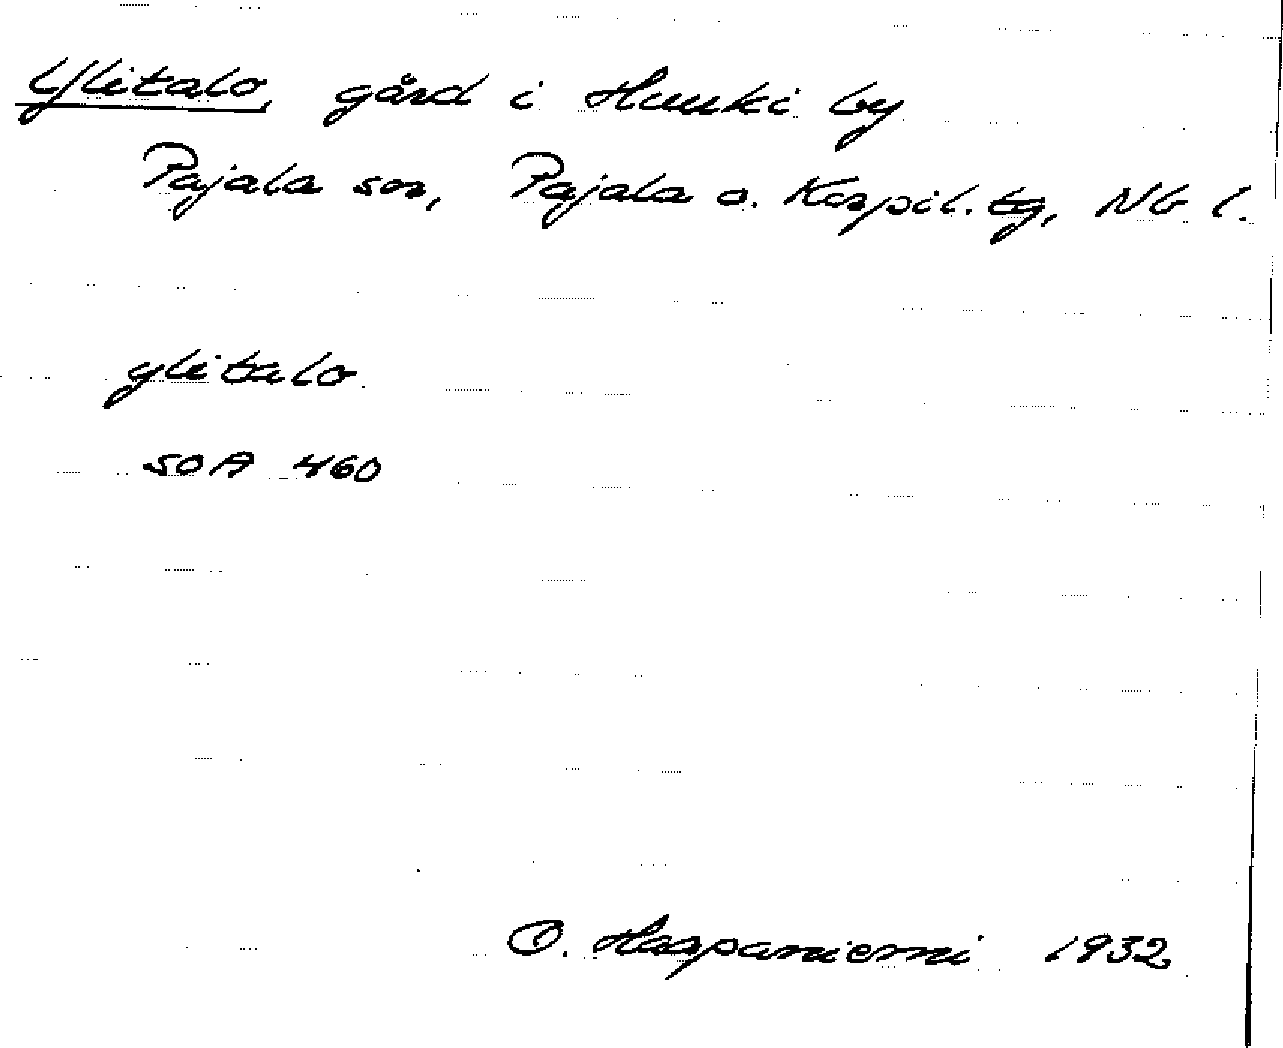 Ylitalo, gård i Hunki by
Pajala sn, Pajala o. Korpil. tg, Nb. l.
ylitalo
SOA 460
O. Haapaniemi 1932